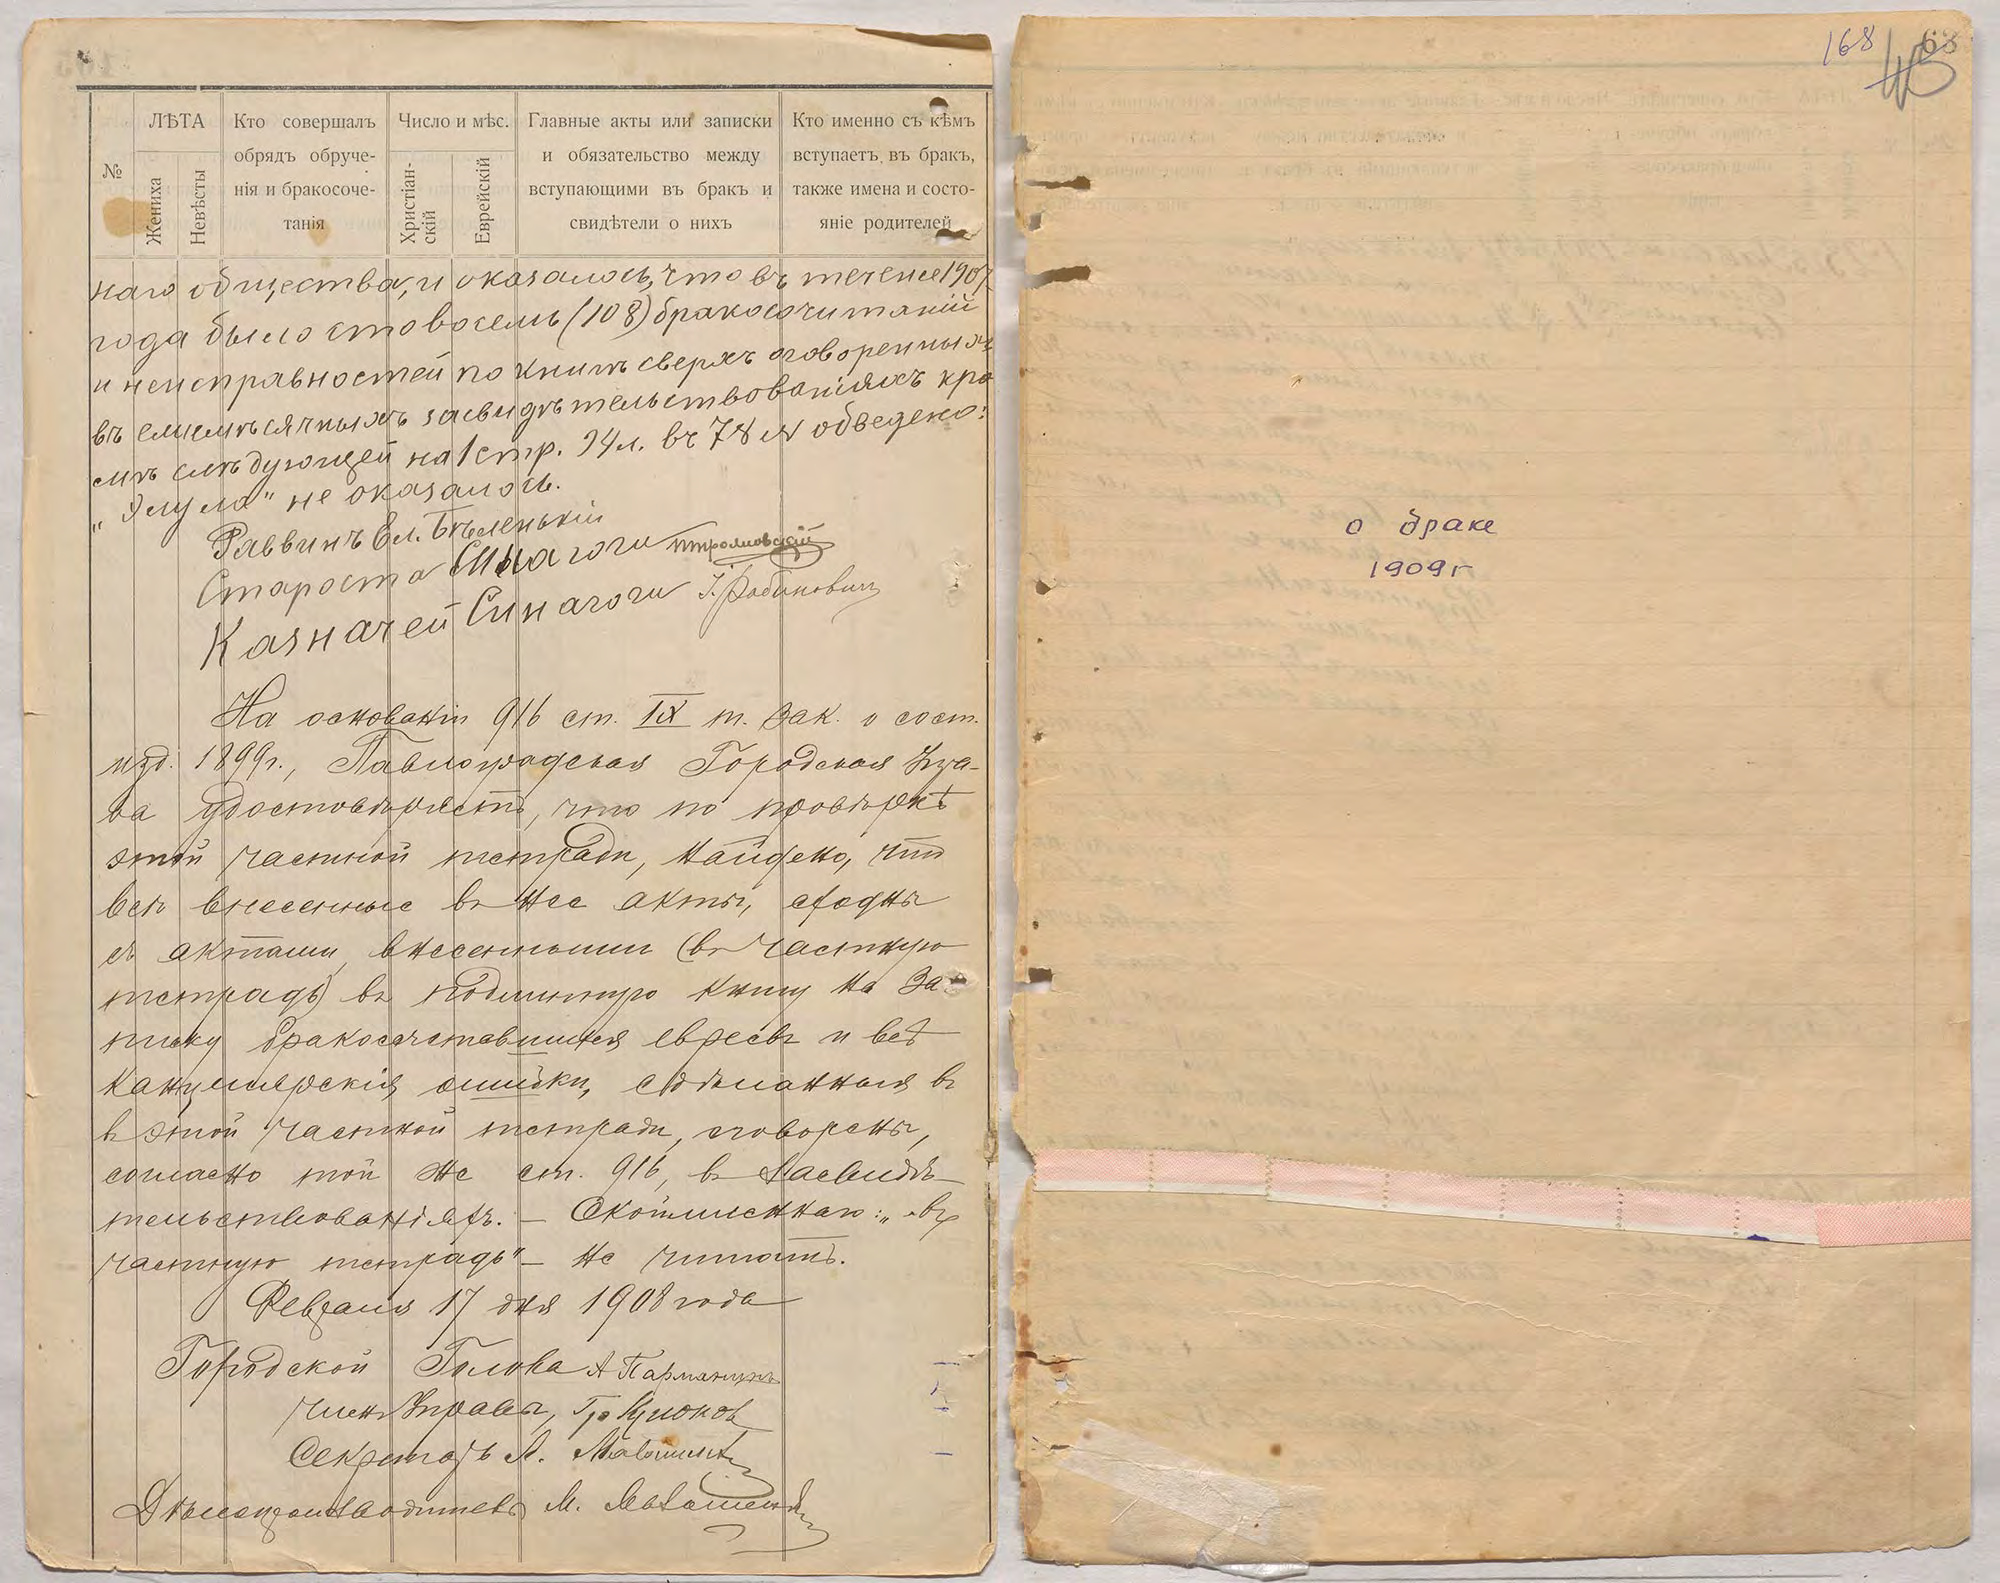 №
ЛѢТА
Жениха
Невѣсты
Кто совершалъ
обрядъ обруче-
нія и бракосоче-
танія
Число и мѣс.
Христіан-
скій
Еврейскій
Главные акты или записки
и обязательство между
вступающими въ бракъ и
свидѣтели о нихъ
Кто именно съ кѣмъ
вступаетъ въ бракъ,
также имена и состо-
яніе родителей
наго общества, и оказалось, что въ теченіе 1907
года было сто восемь (108) бракосочитаній
и неисправностей по книгѣ сверхъ оговоренныхъ
въ ежемѣсячныхъ засвидѣтельствованіяхъ кро
мѣ слѣдующей на 1 стр. 94 л. въ 78 № обведено:
„Элула" не оказалось.
Раввинъ Ел. Бѣленькій
Староста Синагоги
Казначей Синагоги І. Рабиновичъ
На основаніи 916 ст. IX т. Зак. о сост.
изд. 1899 г., Павлоградская Городская Упра-
ва удостовѣряетъ, что по провѣркѣ
этой частной тетради, найдено, что
всѣ внесенные въ нее акты, сходны
съ актами, внесенными (въ частную
тетрадь) въ подлинную книгу на за-
писку бракосочетавшихся евреевъ и всѣ
канцелярскія ошибки, сдѣланныя в
в этой частной тетради, оговорены,
согласно той же ст. 916, в засвидѣ-
тельствованіяхъ. – Скобленное: „въ
частную тетрадь" – не читать.
Февраля 17 дня 1908 года
Городской Голова А
Член Управы, Гр Крюков
Секретарь
Дѣлопроизводитель М.
168
63
о браке
1909 г